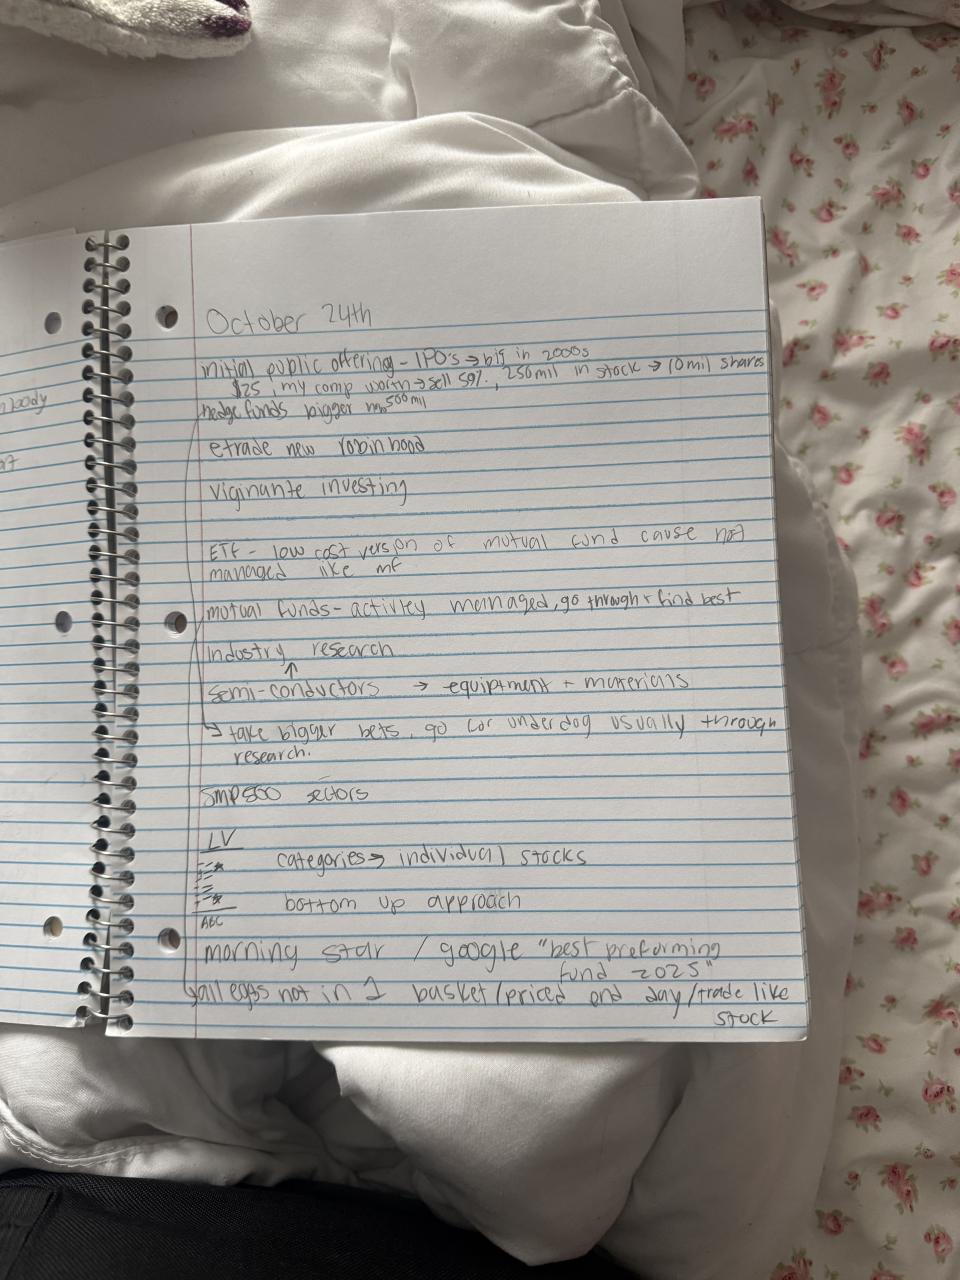 body
October 24th
initial public offering - IPO's → big in 2000s
$25 my comp worth → sell 59%, 250mil in stock → 10 mil shares
hedge funds bigger 500mil
etrade new robinhood
viginante investing
ETF - low cost version of mutual fund cause not
managed like mf
mutual funds - activley managed, go through + find best
industry research
↑
semi-conductors → equiptment + materials
↳ take bigger bets, go for underdog usually through
research.
SMP500 sectors
LV
categories → individual stocks
bottom up approach
ABC
morning star / google "best preforming
fund 2025"
all eggs not in 1 basket/priced end day/trade like
stock